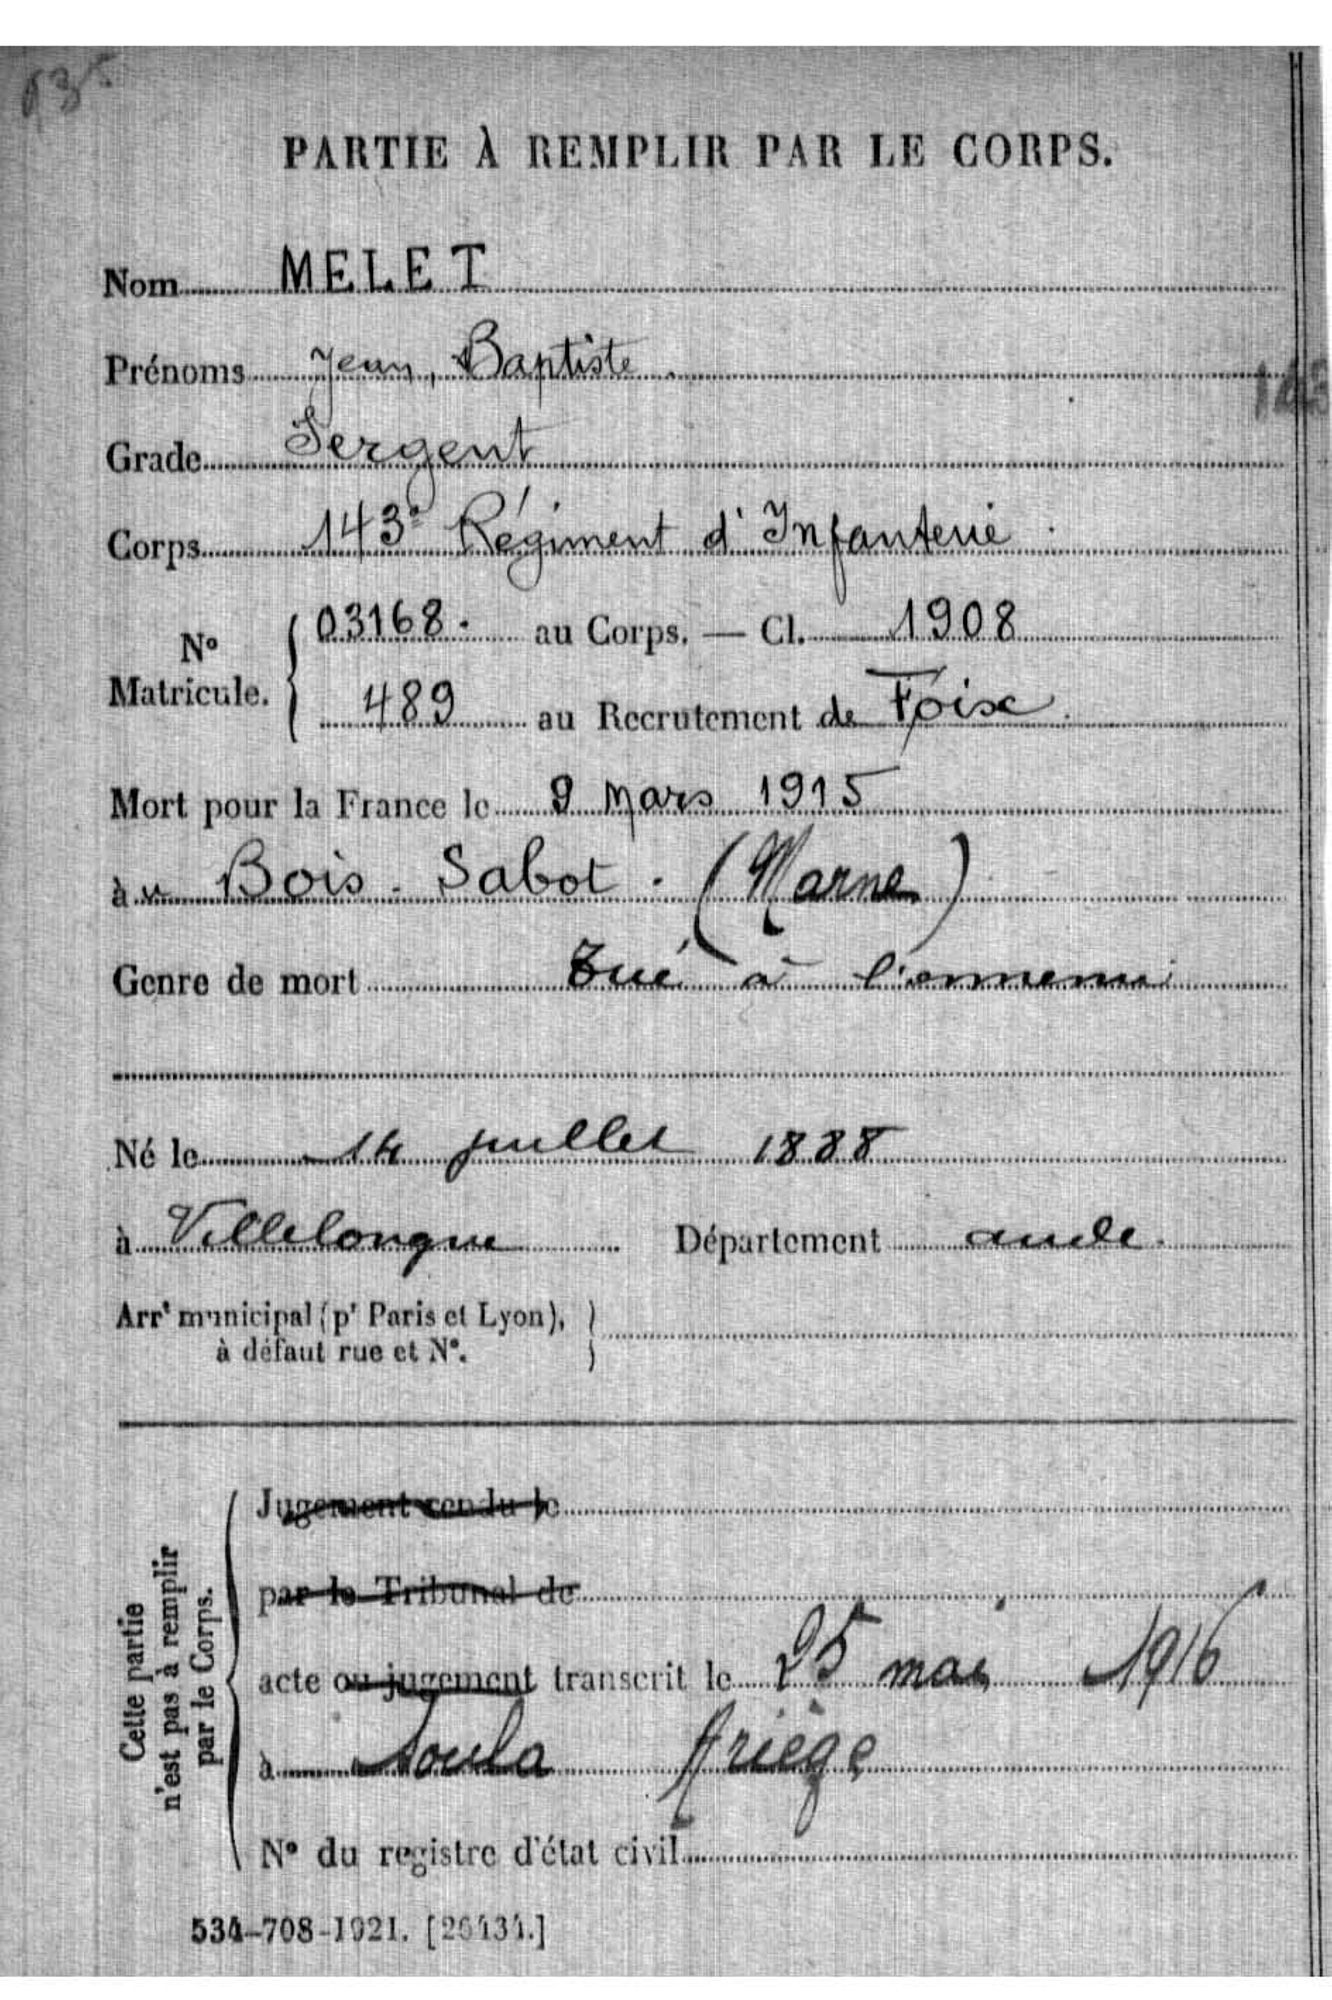 PARTIE À REMPLIR PAR LE CORPS.
Nom MELET
Prénoms Jean, Baptiste.
143
Grade Sergent
Corps 143e Régiment d'Infanterie.
N° Matricule. { 03168. au Corps. — Cl. 1908
489 au Recrutement de Foix.
Mort pour la France le 9 Mars 1915
àu Bois-Sabot. (Marne)
Genre de mort Tué à l'ennemi
Né le 14 juillet 1888
à Villelongue Département aude.
Arrt municipal (pr Paris et Lyon), }
à défaut rue et N°.
Cette partie
n'est pas à remplir
par le Corps.
Jugement rendu le
par le Tribunal de
acte ou jugement transcrit le 25 mai 1916
à Soula Ariège
N° du registre d'état civil
534-708-1921. [26434.]